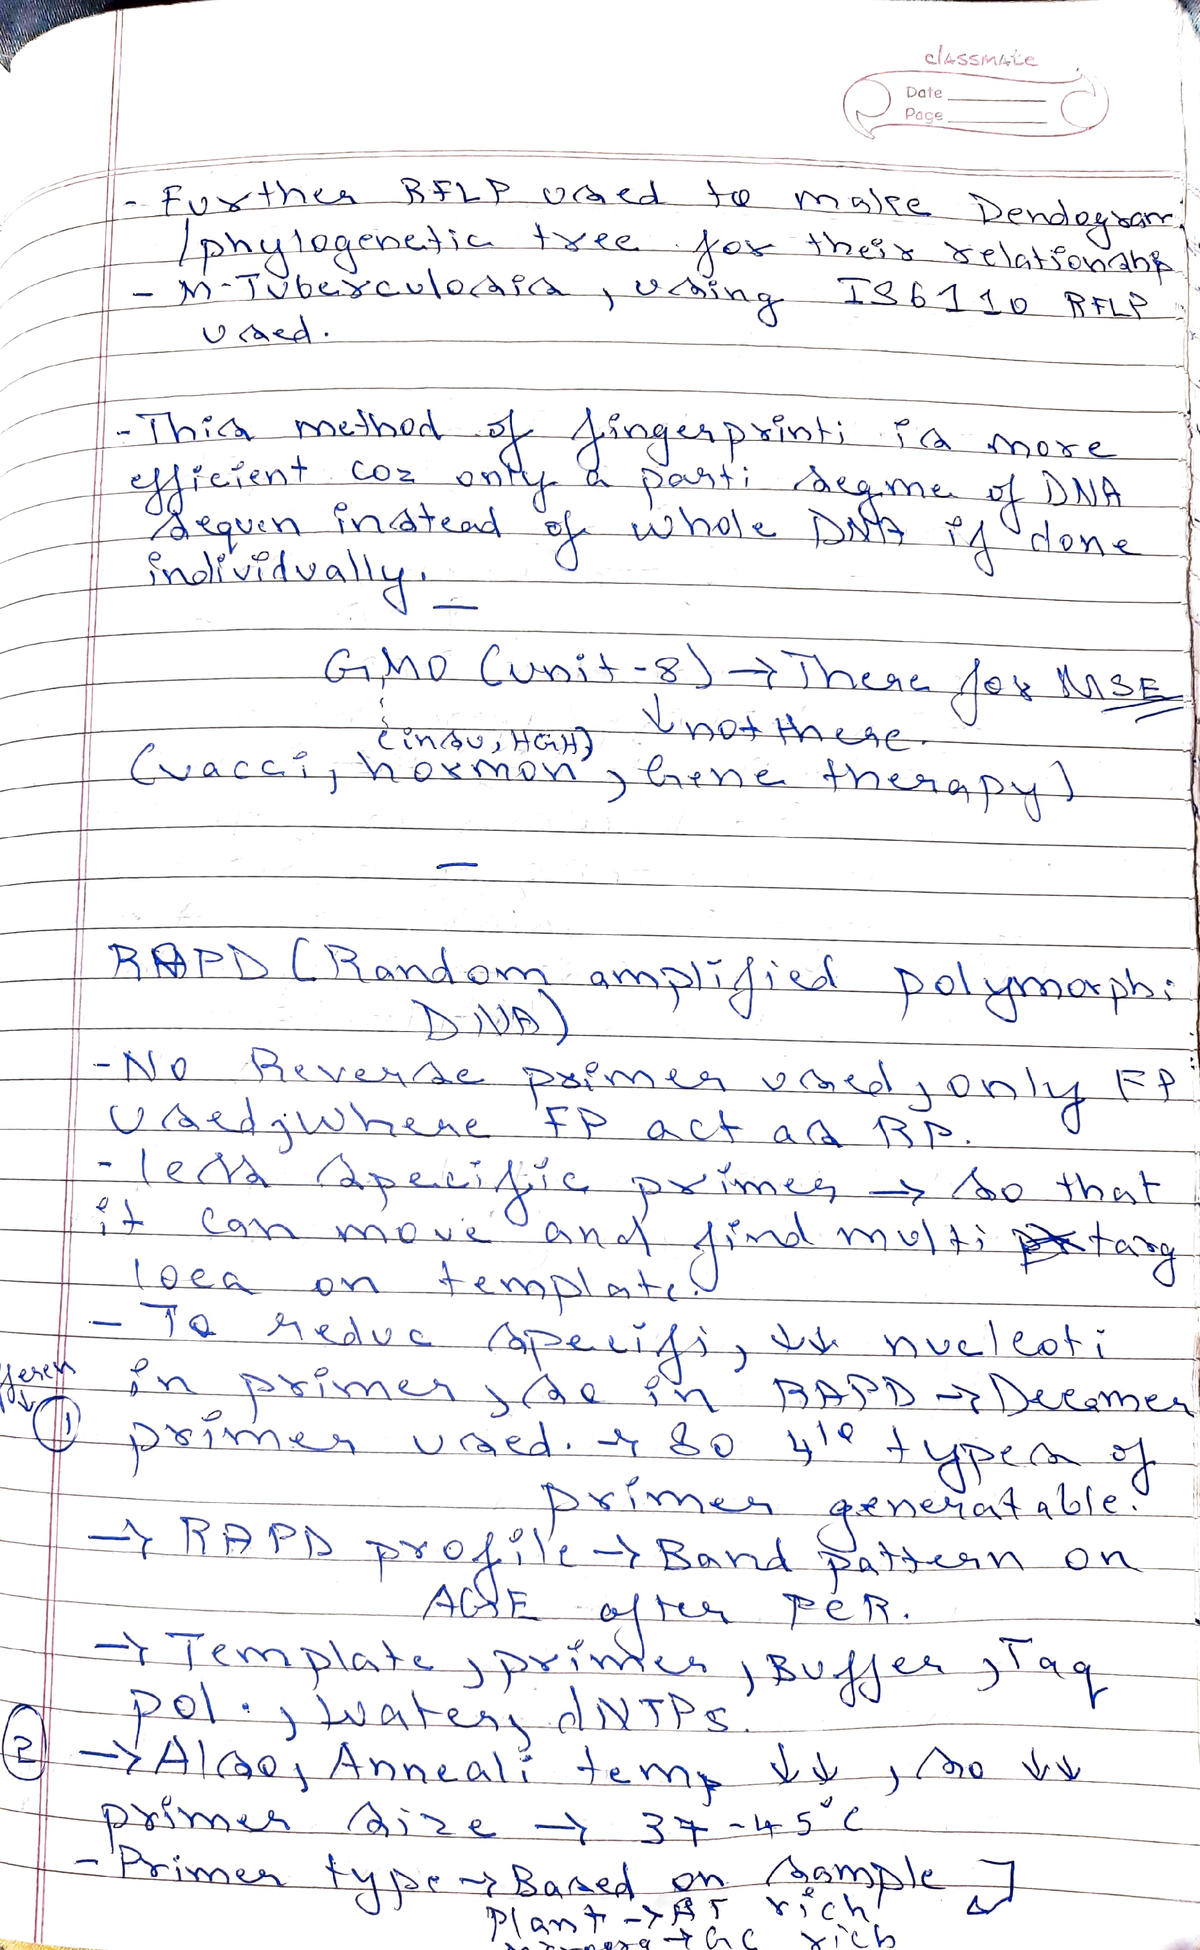 classmate
Date
Page
- Further RFLP used to make Dendogram
/phylogenetic tree for their relationship
- M-Tuberculosis, using IS6110 RFLP
used.
- This method of fingerprinti is more
efficient coz only a parti segme of DNA
sequen instead of whole DNA if done
individually.
GMO (unit-8) → There for MSE
↓ not there.
(insu, HGH)
(vacci, hormon, Gene therapy)
RAPD (Random amplified polymorphi
DNA)
- No Reverse primer used, only FP
used; where FP act as RP.
- less specific primer → so that
it can move and find multi targ
loca on template.
- To reduc specifi, ↓↓ nucleoti
in primer, so in RAPD → Decamer
①
primer used. → So 4¹⁰ types of
primer generatable.
→ RAPD profile → Band pattern on
AGE after PCR.
→ Template, primer, Buffer, Taq
pol., water, dNTPs.
② → Also, Anneali temp ↓↓, so ↓↓
primer size → 37-45°C
- Primer type → Based on sample
Plant → AT rich
→ GC rich